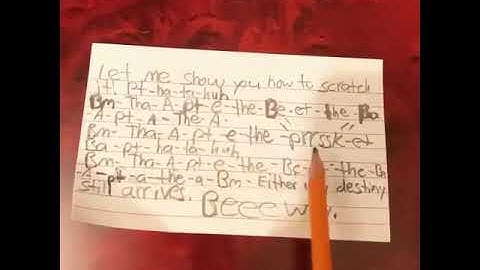 Let me show you how to scratch
It! pt-ha-ta-huh
Bm-Tha-A-pt-e-the-Be-et-the-Ba
-A-pt-a-The-A-
Bm-Tha-A-pt-e-the-"prrssk-et"
Ba-pt-ha-ta-huh
Bm-Tha-A-pt-e-the-Be- -the-Ba
-A-pt-a-the-a-Bm-Either destiny
still arrives.
Beeeway.